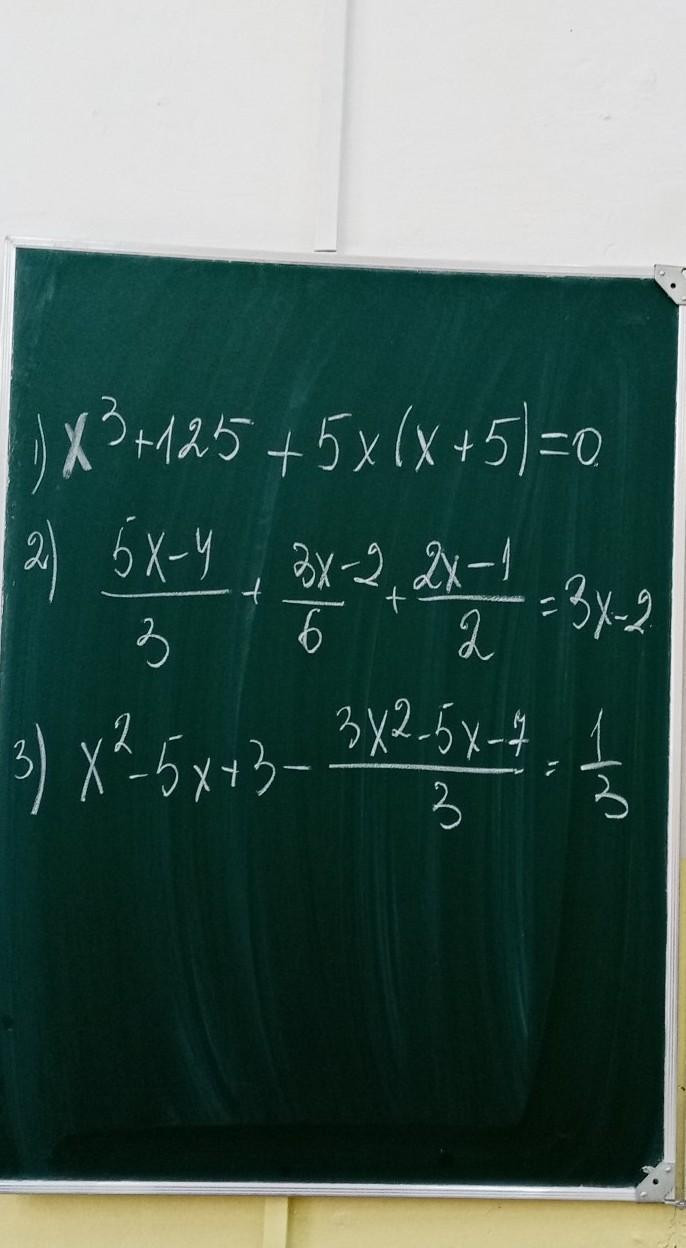 1) x³+125 + 5x(x+5)=0
2) (5x-4)/3 + (3x-2)/6 + (2x-1)/2 = 3x-2
3) x²-5x+3 - (3x²-5x-7)/3 = 1/3